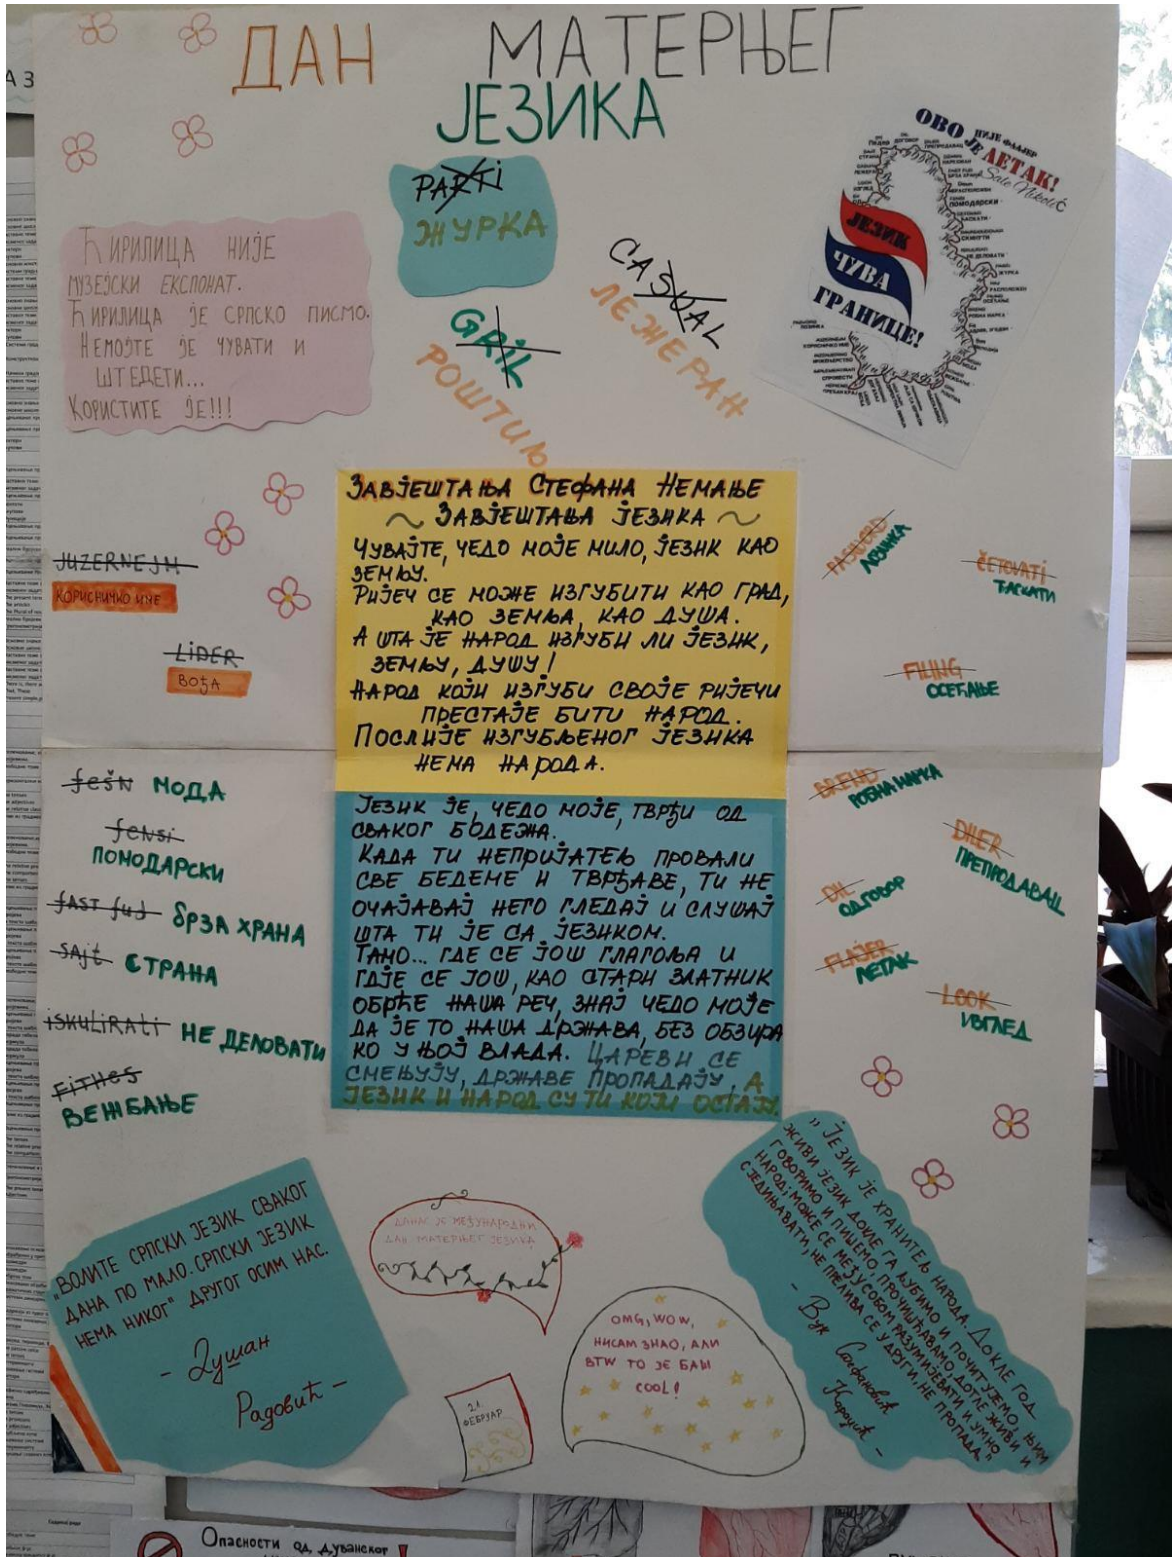 ДАН МАТЕРЊЕГ
ЈЕЗИКА
PARTi
ЖУРКА
CASUAL
ЛЕЖЕРАН
GRiL
РОШТИЉ
ОВО НИЈЕ ФЛАЈЕР
ЈЕ ЛЕТАК!
Sale Nikolić
ЈЕЗИК
ЧУВА
ГРАНИЦЕ!
ЋИРИЛИЦА НИЈЕ
МУЗЕЈСКИ ЕКСПОНАТ.
ЋИРИЛИЦА ЈЕ СРПСКО ПИСМО.
НЕМОЈТЕ ЈЕ ЧУВАТИ И
ШТЕДЕТИ...
КОРИСТИТЕ ЈЕ!!!
ЗАВЈЕШТАЊА СТЕФАНА НЕМАЊЕ
~ ЗАВЈЕШТАЊА ЈЕЗИКА ~
ЧУВАЈТЕ, ЧЕДО МОЈЕ МИЛО, ЈЕЗИК КАО
ЗЕМЉУ.
РИЈЕЧ СЕ МОЖЕ ИЗГУБИТИ КАО ГРАД,
КАО ЗЕМЉА, КАО ДУША.
А ШТА ЈЕ НАРОД ИЗГУБИ ЛИ ЈЕЗИК,
ЗЕМЉУ, ДУШУ!
НАРОД КОЈИ ИЗГУБИ СВОЈЕ РИЈЕЧИ
ПРЕСТАЈЕ БИТИ НАРОД.
ПОСЛИЈЕ ИЗГУБЉЕНОГ ЈЕЗИКА
НЕМА НАРОДА.
ЈЕЗИК ЈЕ, ЧЕДО МОЈЕ, ТВРЂИ ОД
СВАКОГ БОДЕЖА.
КАДА ТИ НЕПРИЈАТЕЉ ПРОВАЛИ
СВЕ БЕДЕМЕ И ТВРЂАВЕ, ТИ НЕ
ОЧАЈАВАЈ НЕГО ГЛЕДАЈ И СЛУШАЈ
ШТА ТИ ЈЕ СА ЈЕЗИКОМ.
ТАМО... ГДЕ СЕ ЈОШ ГЛАГОЉА И
ГДЈЕ СЕ ЈОШ, КАО СТАРИ ЗЛАТНИК
ОБРЋЕ НАША РЕЧ, ЗНАЈ ЧЕДО МОЈЕ
ДА ЈЕ ТО НАША ДРЖАВА, БЕЗ ОБЗИРА
КО У ЊОЈ ВЛАДА. ЦАРЕВИ СЕ
СМЕЊУЈУ, ДРЖАВЕ ПРОПАДАЈУ, А
ЈЕЗИК И НАРОД СУ ТИ КОЈИ ОСТАЈУ.
JUZERNEJM
КОРИСНИЧКО ИМЕ
LiDER
ВОЂА
fešn МОДА
fensi
ПОМОДАРСКИ
fast fud БРЗА ХРАНА
sajt СТРАНА
iskulirati НЕ ДЕЛОВАТИ
FiTNES
ВЕЖБАЊЕ
PASVORD
ЛОЗИНКА
ČETOVATi
ТАСКАТИ
FILING
ОСЕЋАЊЕ
BREND
РОБНА МАРКА
DILER
ПРЕПРОДАВАЦ
DIL
ОДГОВОР
FLAJER
ЛЕТАК
LOOK
ИЗГЛЕД
„ВОЛИТЕ СРПСКИ ЈЕЗИК СВАКОГ
ДАНА ПО МАЛО. СРПСКИ ЈЕЗИК
НЕМА НИКОГ" ДРУГОГ ОСИМ НАС.
- Душан
Радовић -
ДАНАС ЈЕ МЕЂУНАРОДНИ
ДАН МАТЕРЊЕГ ЈЕЗИКА
21.
ФЕБРУАР
OMG, WOW,
НИСАМ ЗНАО, АЛИ
BTW ТО ЈЕ БАШ
COOL!
„ ЈЕЗИК ЈЕ ХРАНИТЕЉ НАРОДА. ДОКЛЕ ГОД
ЖИВИ ЈЕЗИК ДОКЛЕ ГА ЉУБИМО И ПОЧИТУЈЕМО, ЊИМ
ГОВОРИМО И ПИШЕМО, ПРОЧИШЋАВАМО, ДОТЛЕ ЖИВИ И
НАРОД; МОЖЕ СЕ МЕЂУСОБОМ РАЗУМИЈЕВАТИ И УМНО
СЈЕДИЊАВАТИ, НЕ ПРЕЛИВА СЕ У ДРУГИ, НЕ ПРОПАДА."
- Вук Стефановић
Караџић -
Опасности од дуванског